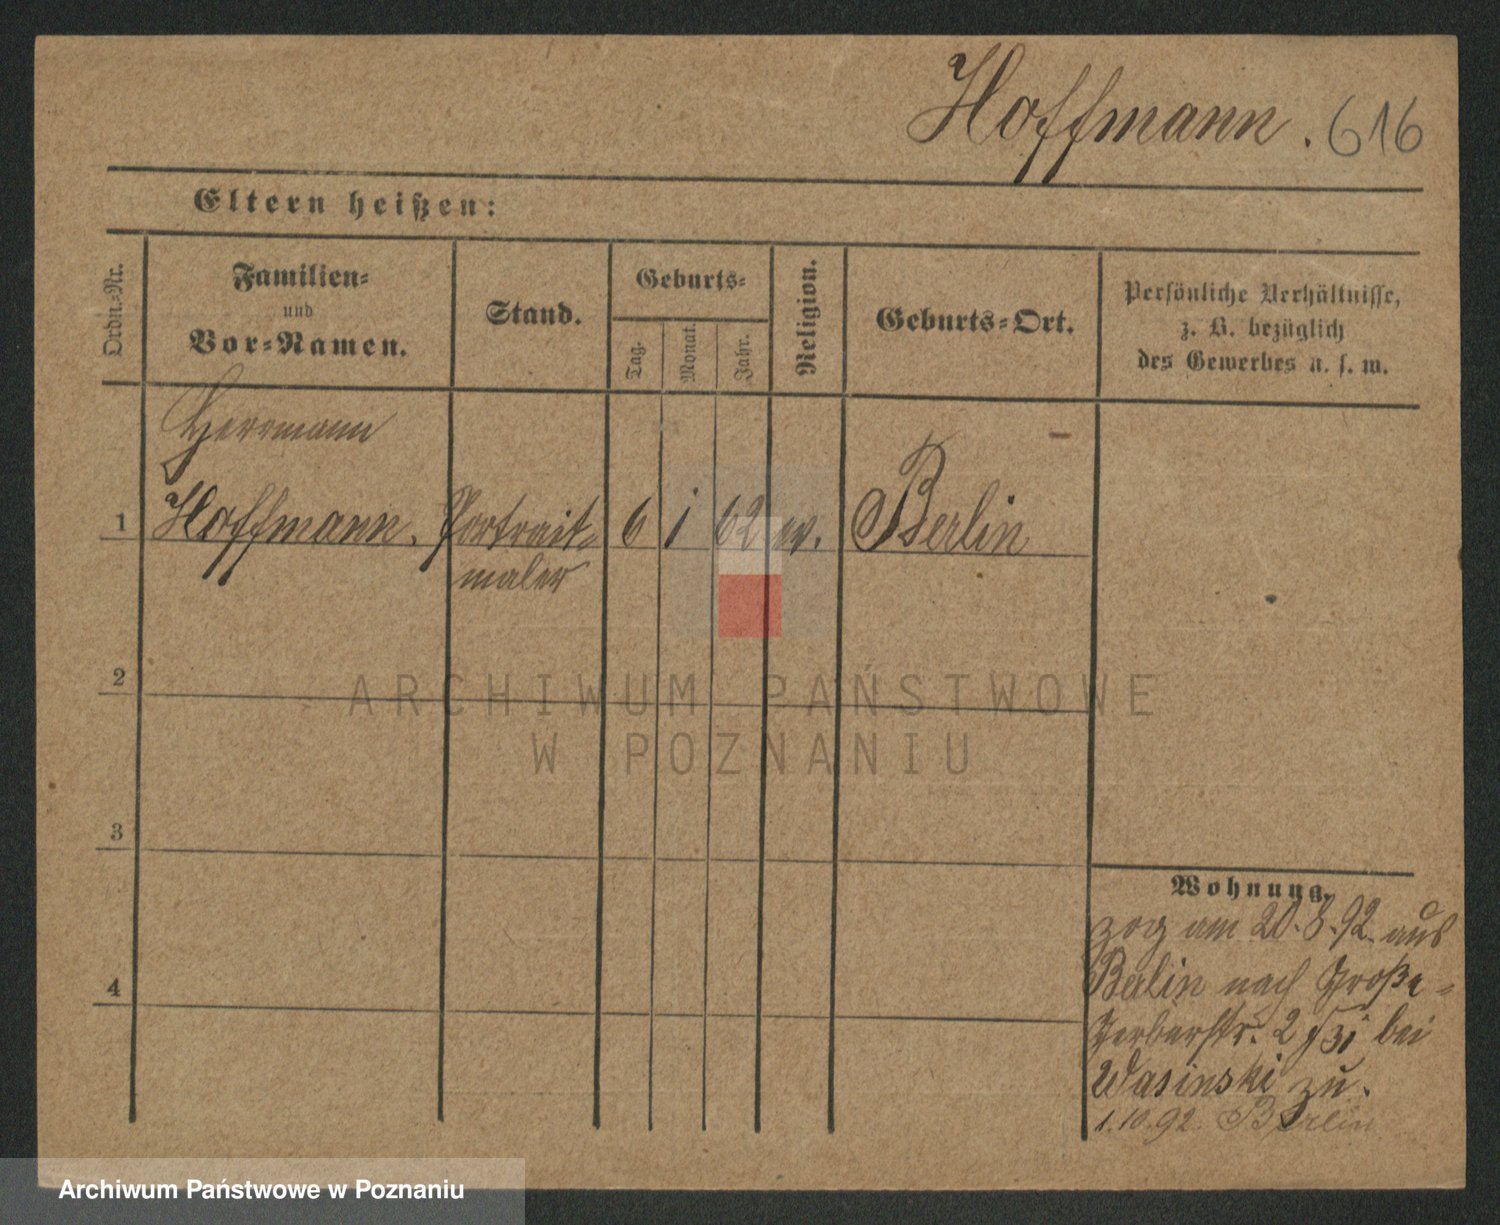 Hoffmann. 616
Eltern heißen:
Ordn.-Nr.
Familien-
und
Vor-Namen.
Stand.
Geburts-
Tag.
Monat.
Jahr.
Religion.
Geburts-Ort.
Persönliche Verhältnisse,
z. B. bezüglich
des Gewerbes u. s. w.
Herrmann
1 Hoffmann. Portrait- 6 1 62 ev. Berlin
maler
2
3
4
Wohnung.
zog am 20.8.92. aus
Berlin nach Große-
Gerberstr. 2 bei
Wasinski zu.
1.10.92. Berlin
ARCHIWUM PAŃSTWOWE
W POZNANIU
Archiwum Państwowe w Poznaniu